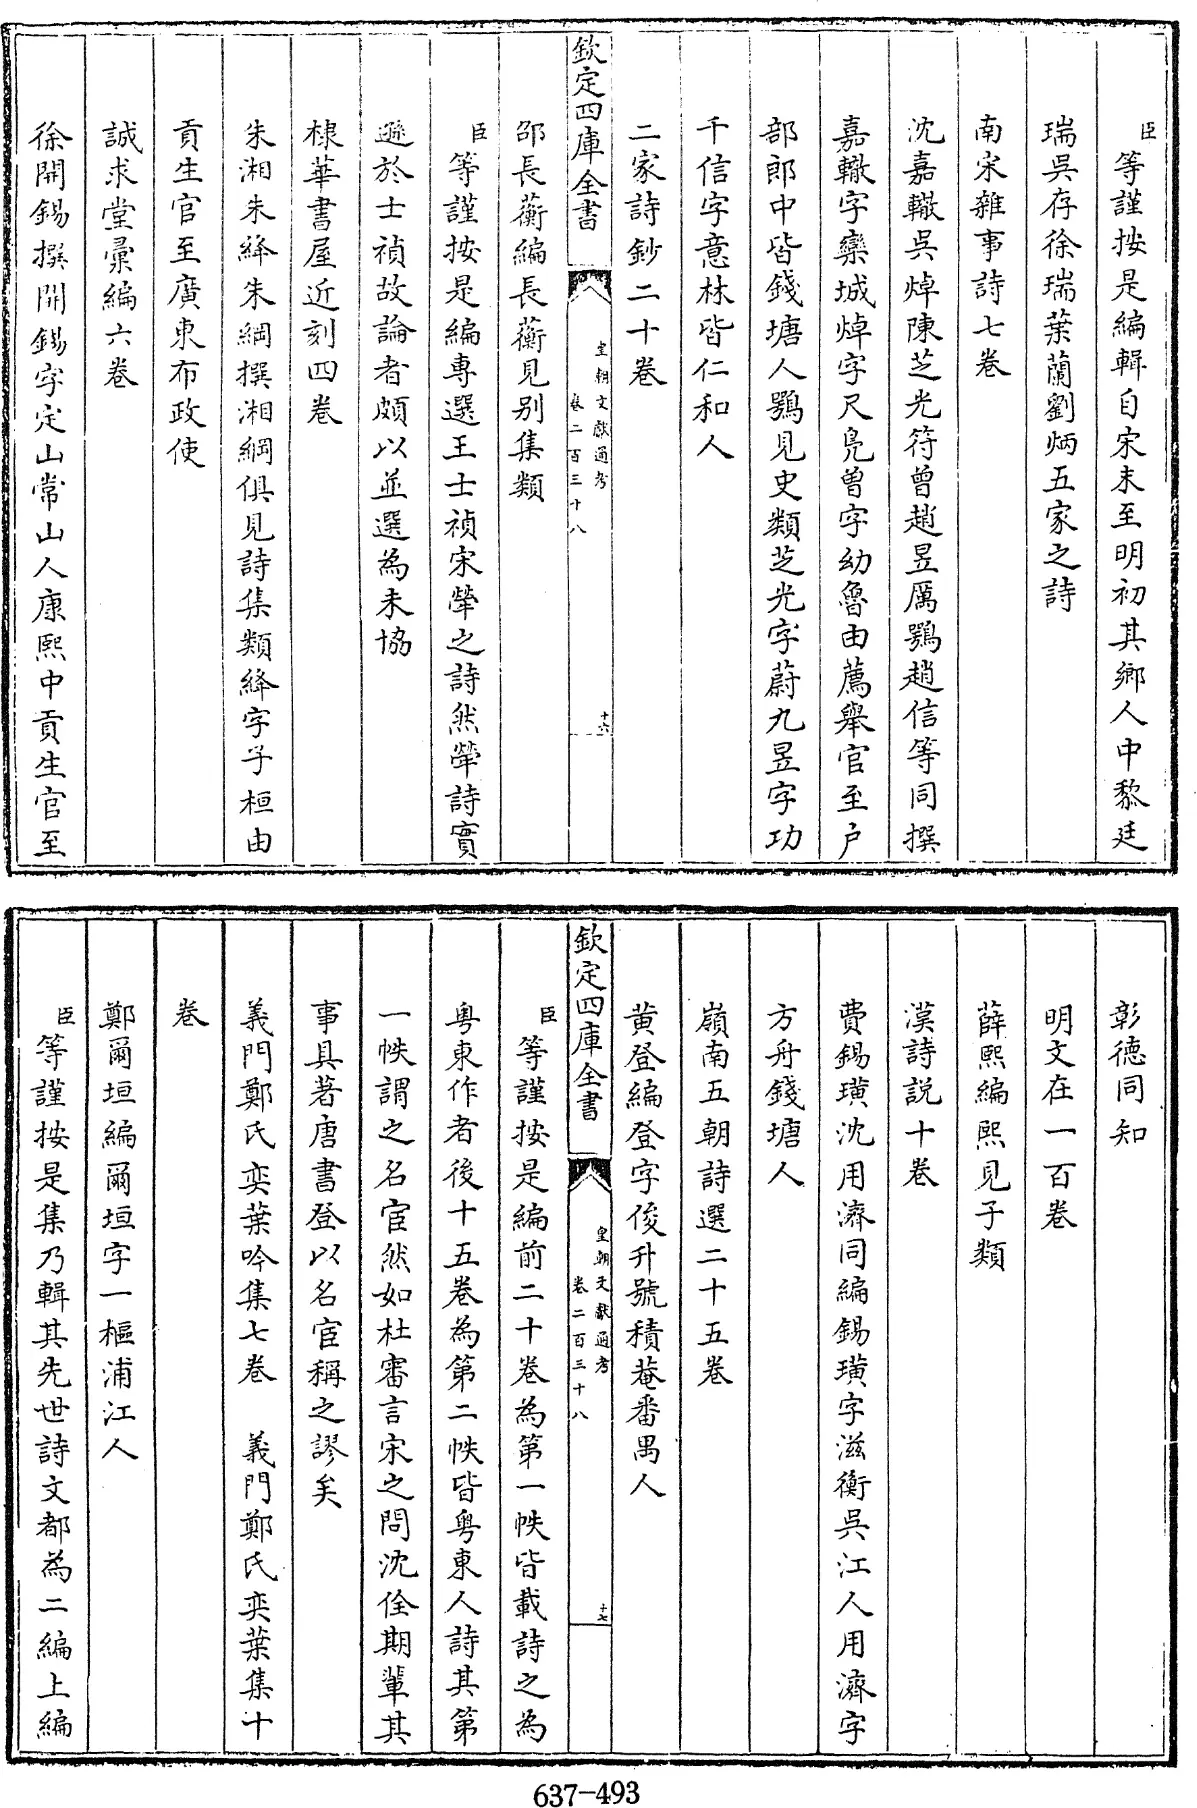 臣等謹按是編輯自宋末至明初其鄉人中黎廷
瑞吳存徐瑞葉蘭劉炳五家之詩
南宋雜事詩七卷
沈嘉轍吳焯陳芝光符曾趙昱厲鶚趙信等同撰
嘉轍字欒城焯字尺鳧曾字幼魯由薦舉官至户
部郎中皆錢塘人鶚見史類芝光字蔚九昱字功
千信字意林皆仁和人
二家詩鈔二十卷
欽定四庫全書
皇朝文獻通考
卷二百三十八
十六
邵長蘅編長蘅見别集類
臣等謹按是編專選王士禎宋犖之詩然犖詩實
遜於士禎故論者頗以並選為未協
棣華書屋近刻四卷
朱湘朱絳朱綱撰湘綱俱見詩集類絳字子桓由
貢生官至廣東布政使
誠求堂彙編六卷
徐開錫撰開錫字定山常山人康熙中貢生官至
彰德同知
明文在一百卷
薛熙編熙見子類
漢詩説十卷
費錫璜沈用濟同編錫璜字滋衡吳江人用濟字
方舟錢塘人
嶺南五朝詩選二十五卷
黄登編登字俊升號積菴番禺人
欽定四庫全書
皇朝文獻通考
卷二百三十八
十七
臣等謹按是編前二十卷為第一帙皆載詩之為
粤東作者後十五卷為第二帙皆粤東人詩其第
一帙謂之名宦然如杜審言宋之問沈佺期輩其
事具著唐書登以名宦稱之謬矣
義門鄭氏奕葉吟集七卷　義門鄭氏奕葉集十
卷
鄭爾垣編爾垣字一樞浦江人
臣等謹按是集乃輯其先世詩文都為二編上編
637-493